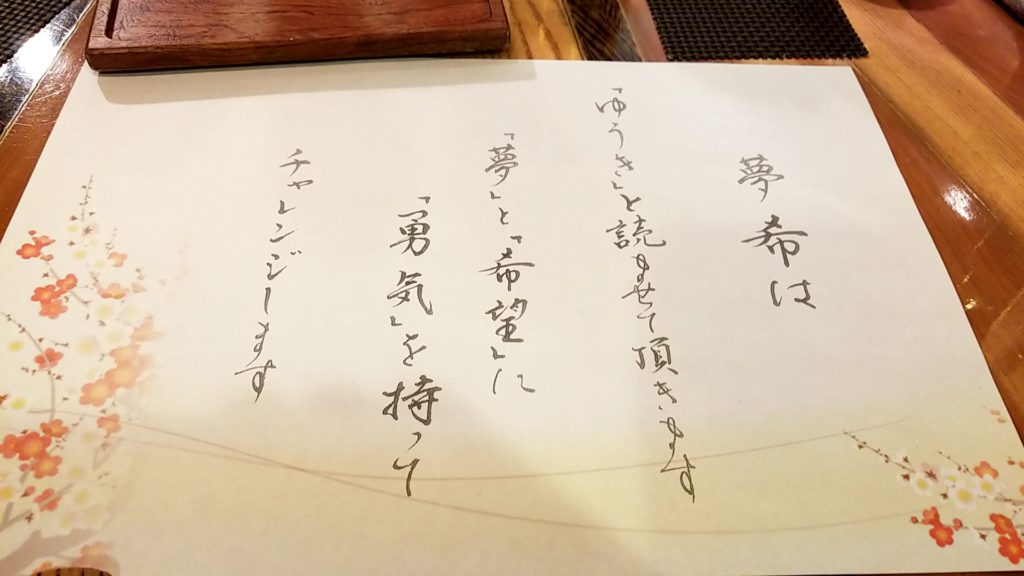 夢希は
「ゆうき」と読ませて頂きます
「夢」と「希望」に
「勇気」を持って
チャレンジします